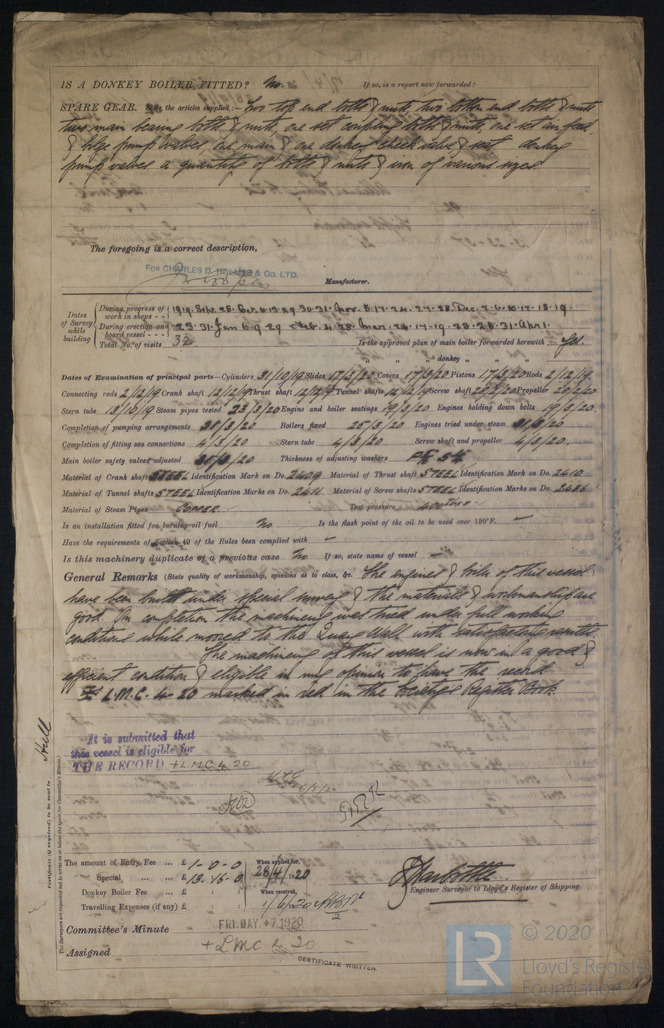 IS A DONKEY BOILER FITTED? No If so, is a report now forwarded?
SPARE GEAR. State the articles supplied:— Two top end bolts & nuts, two bottom end bolts & nuts
two main bearing bolts & nuts, one set coupling bolts & nuts, one set air, feed
& bilge pump valves one main & one donkey check valve & seat donkey
pump valves a quantity of bolts & nuts & iron of various sizes.
The foregoing is a correct description,
FOR CHARLES D. HOLMES & CO. LTD.
Manufacturer.
Dates of Survey while building
During progress of work in shops - - 1919. Sept. 25. Oct. 6. 13. 29. 30. 31. Nov. 8. 17. 24. 27. 28. Dec. 2. 6. 10. 12. 18. 19.
During erection on board vessel - - - 23. 31. Jan 6. 9. 29 Feb. 4. 28. Mar. 17. 19. 23. 28. 31. Apr. 1.
Total No. of visits 32 Is the approved plan of main boiler forwarded herewith Yes.
" " " donkey " " "
Dates of Examination of principal parts—Cylinders 31/10/19 Slides 17/2/20 Covers 17/2/20 Pistons 17/2/20 Rods 2/12/19
Connecting rods 2/12/19 Crank shaft 12/12/19 Thrust shaft 12/12/19 Tunnel shafts 12/12/19 Screw shaft 20/2/20 Propeller 20/2/20
Stern tube 18/12/19 Steam pipes tested 23/3/20 Engine and boiler seatings 19/3/20 Engines holding down bolts 19/3/20
Completion of pumping arrangements 31/3/20 Boilers fixed 25/3/20 Engines tried under steam 31/3/20
Completion of fitting sea connections 4/3/20 Stern tube 4/3/20 Screw shaft and propeller 4/3/20.
Main boiler safety valves adjusted 31/3/20 Thickness of adjusting washers
Material of Crank shaft STEEL Identification Mark on Do. 2409 Material of Thrust shaft STEEL Identification Mark on Do. 2410
Material of Tunnel shafts STEEL Identification Marks on Do. 2411 Material of Screw shafts STEEL Identification Marks on Do. 2486
Material of Steam Pipes Copper Test pressure 400 lbs
Is an installation fitted for burning oil fuel No Is the flash point of the oil to be used over 150°F. —
Have the requirements of Section 49 of the Rules been complied with —
Is this machinery duplicate of a previous case No If so, state name of vessel —
General Remarks (State quality of workmanship, opinions as to class, &c. The engines & boiler of this vessel
have been built under special survey & the materials & workmanship are
good. On completion the machinery was tried under full working
conditions while moored to the Quay Wall with satisfactory results.
The machinery of this vessel is now in a good &
efficient condition & eligible in my opinion to have the record
+ L.M.C. 4-20 marked in red in the Society's Register Book
It is submitted that
this vessel is eligible for
THE RECORD + L.M.C. 4. 20
6/5/20
Hull
Certificate (if required) to be sent to
The Surveyors are requested not to write on or below the space for Committee's Minute.
The amount of Entry Fee ... £ 1-0-0 When applied for,
Special ... £ 13.15.0 28/4/1920
Donkey Boiler Fee ... £ When received,
Travelling Expenses (if any) £ 1/6/20
Engineer Surveyor to Lloyd's Register of Shipping.
Committee's Minute FRI. MAY. 7 1920
Assigned + LMC 4. 20
CERTIFICATE WRITTEN.
© 2020
LR Lloyd's Register
Foundation